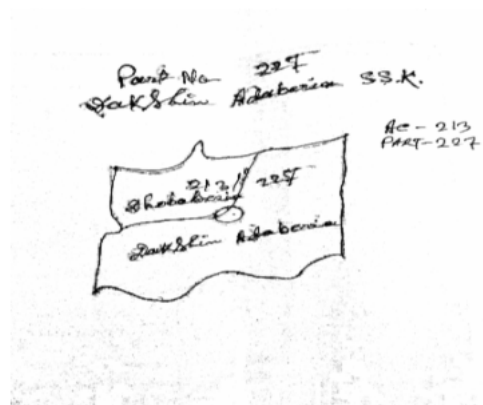 Part No 227
Dakshin Adaberia S.S.K.
AC - 213
PART - 227
213/227
Dhobaberia
Dakshin Adaberia